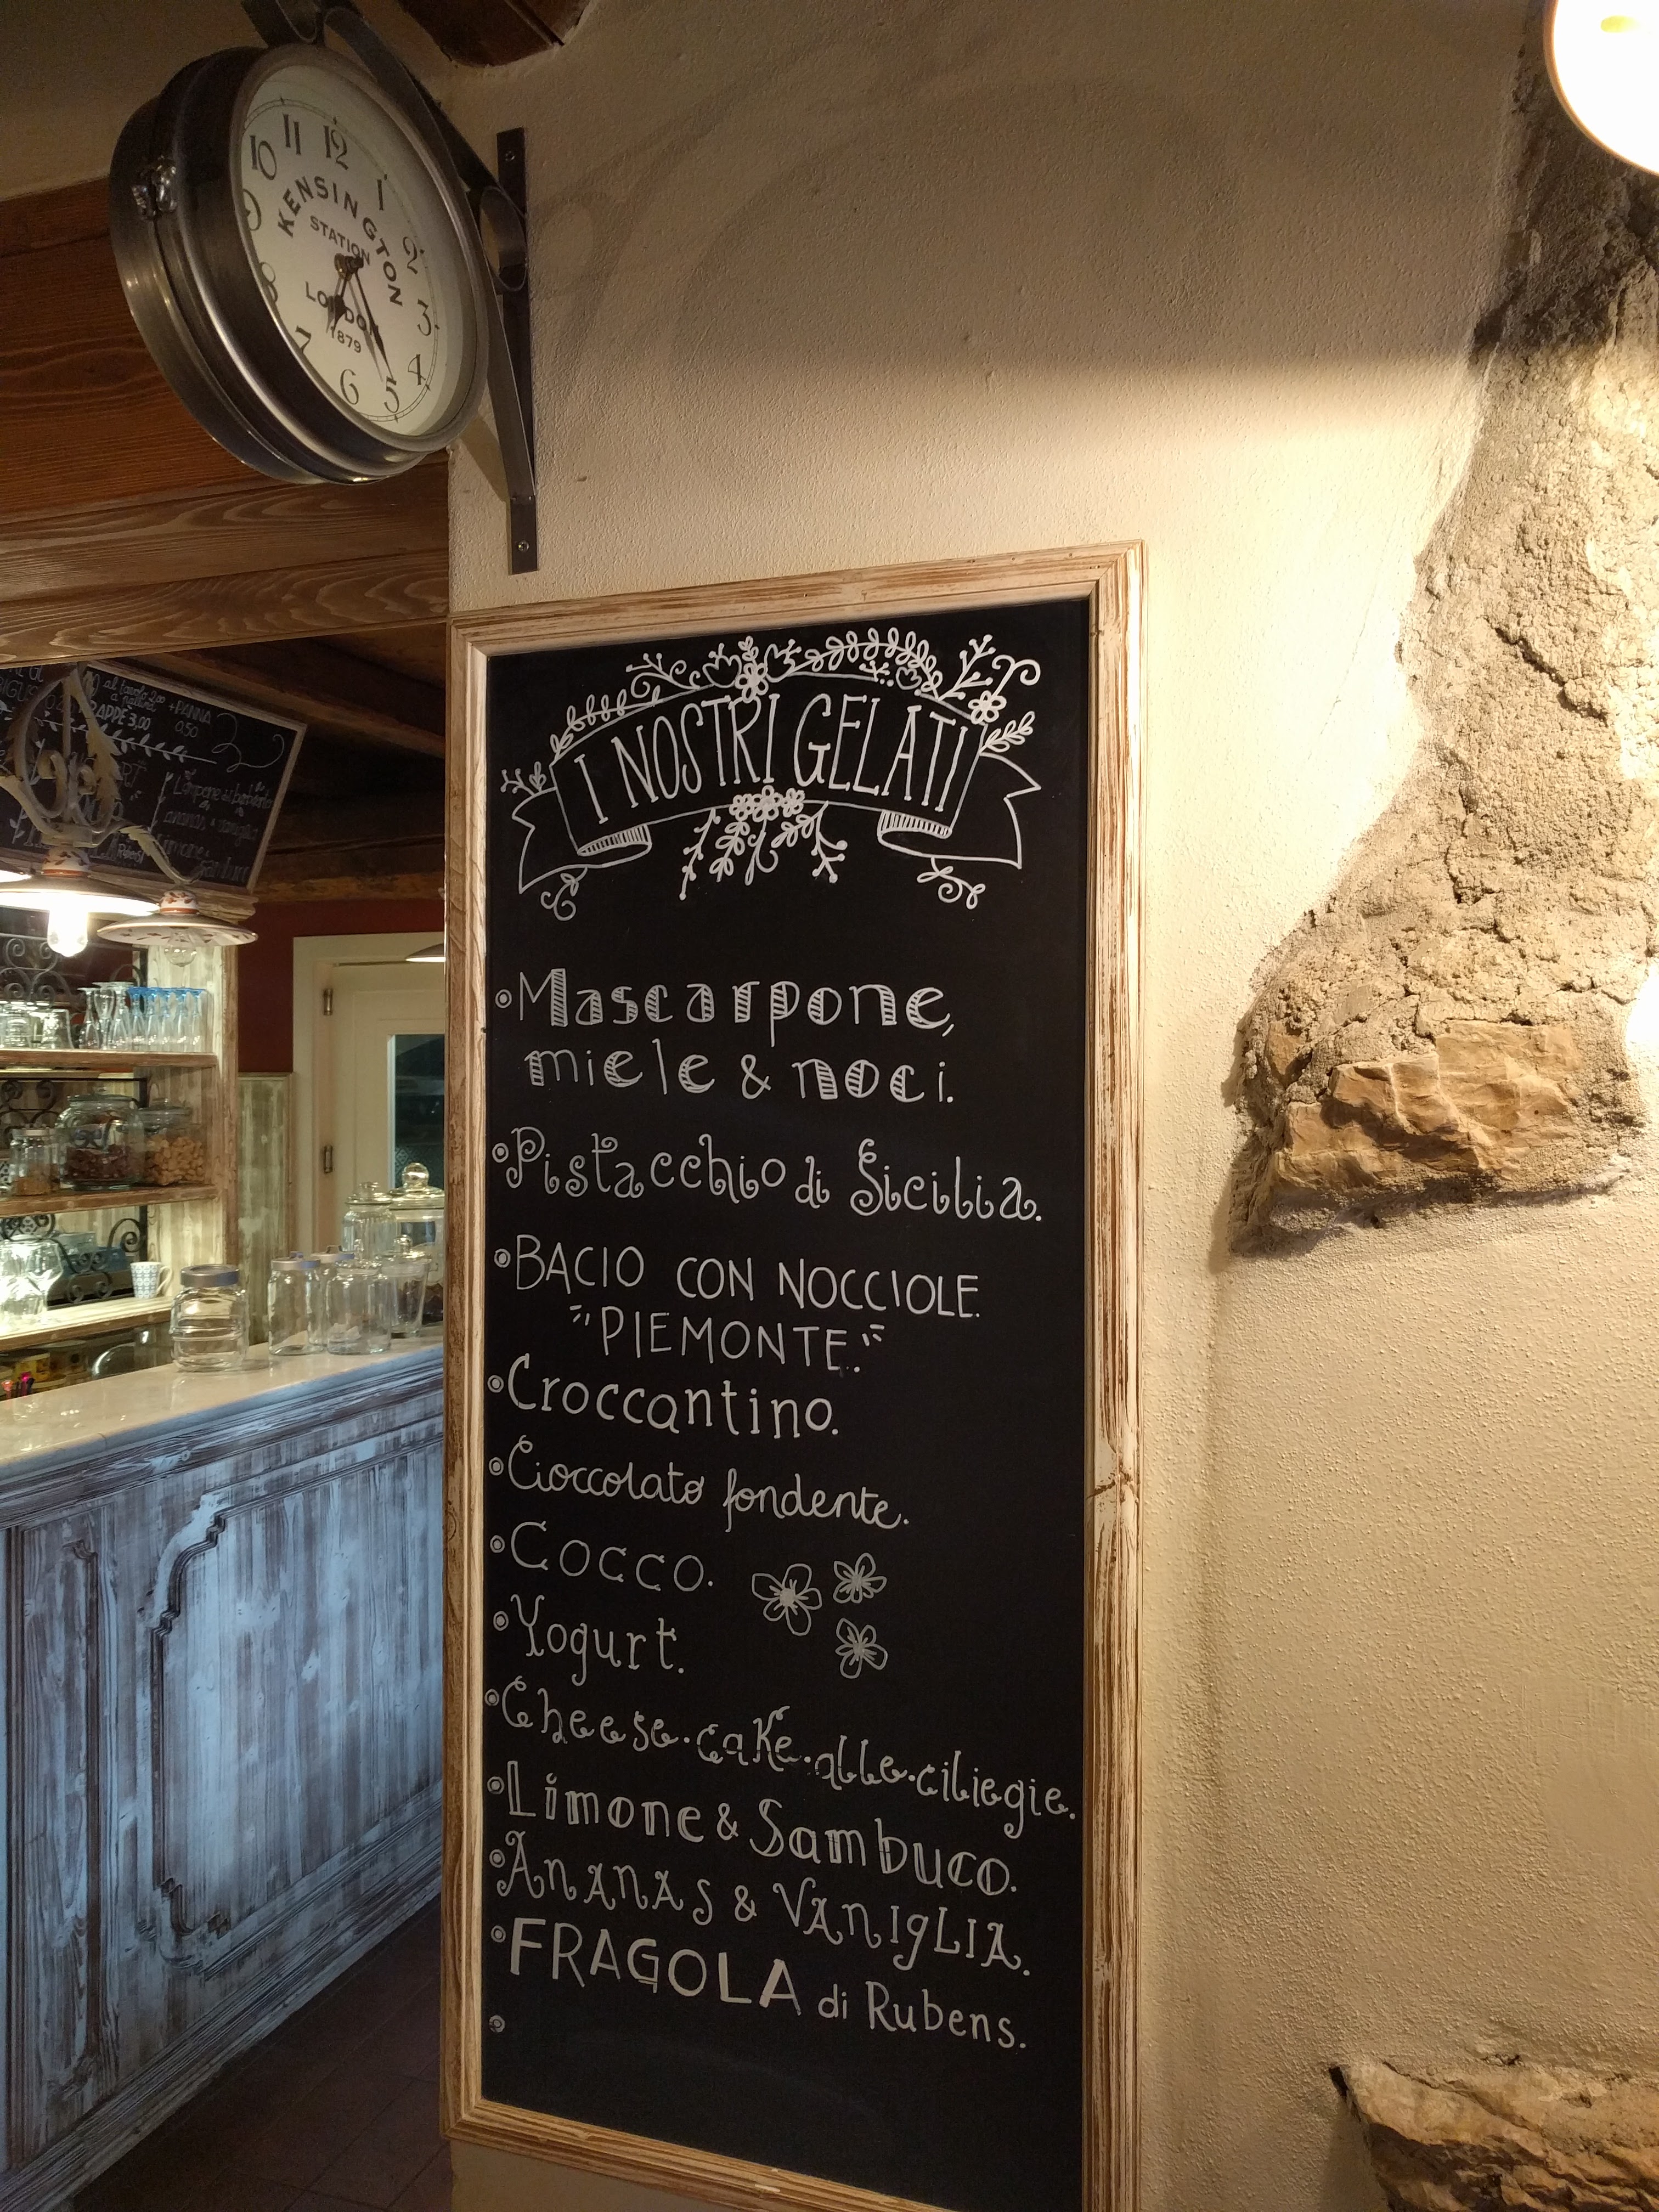 12
1
2
3
4
5
6
7
8
9
10
11
KENSINGTON
STATION
LONDON
1879
al tavolo 2,00
+PANNA
0,50
FRAPPÈ 3,00
I NOSTRI GELATI
Mascarpone,
miele & noci.
Pistacchio di Sicilia.
BACIO CON NOCCIOLE
"PIEMONTE."
Croccantino.
Cioccolato fondente.
COCCO.
Yogurt.
Cheese.cake.alle.ciliegie.
Limone & Sambuco.
ANANAS & VANIGLIA.
FRAGOLA di Rubens.